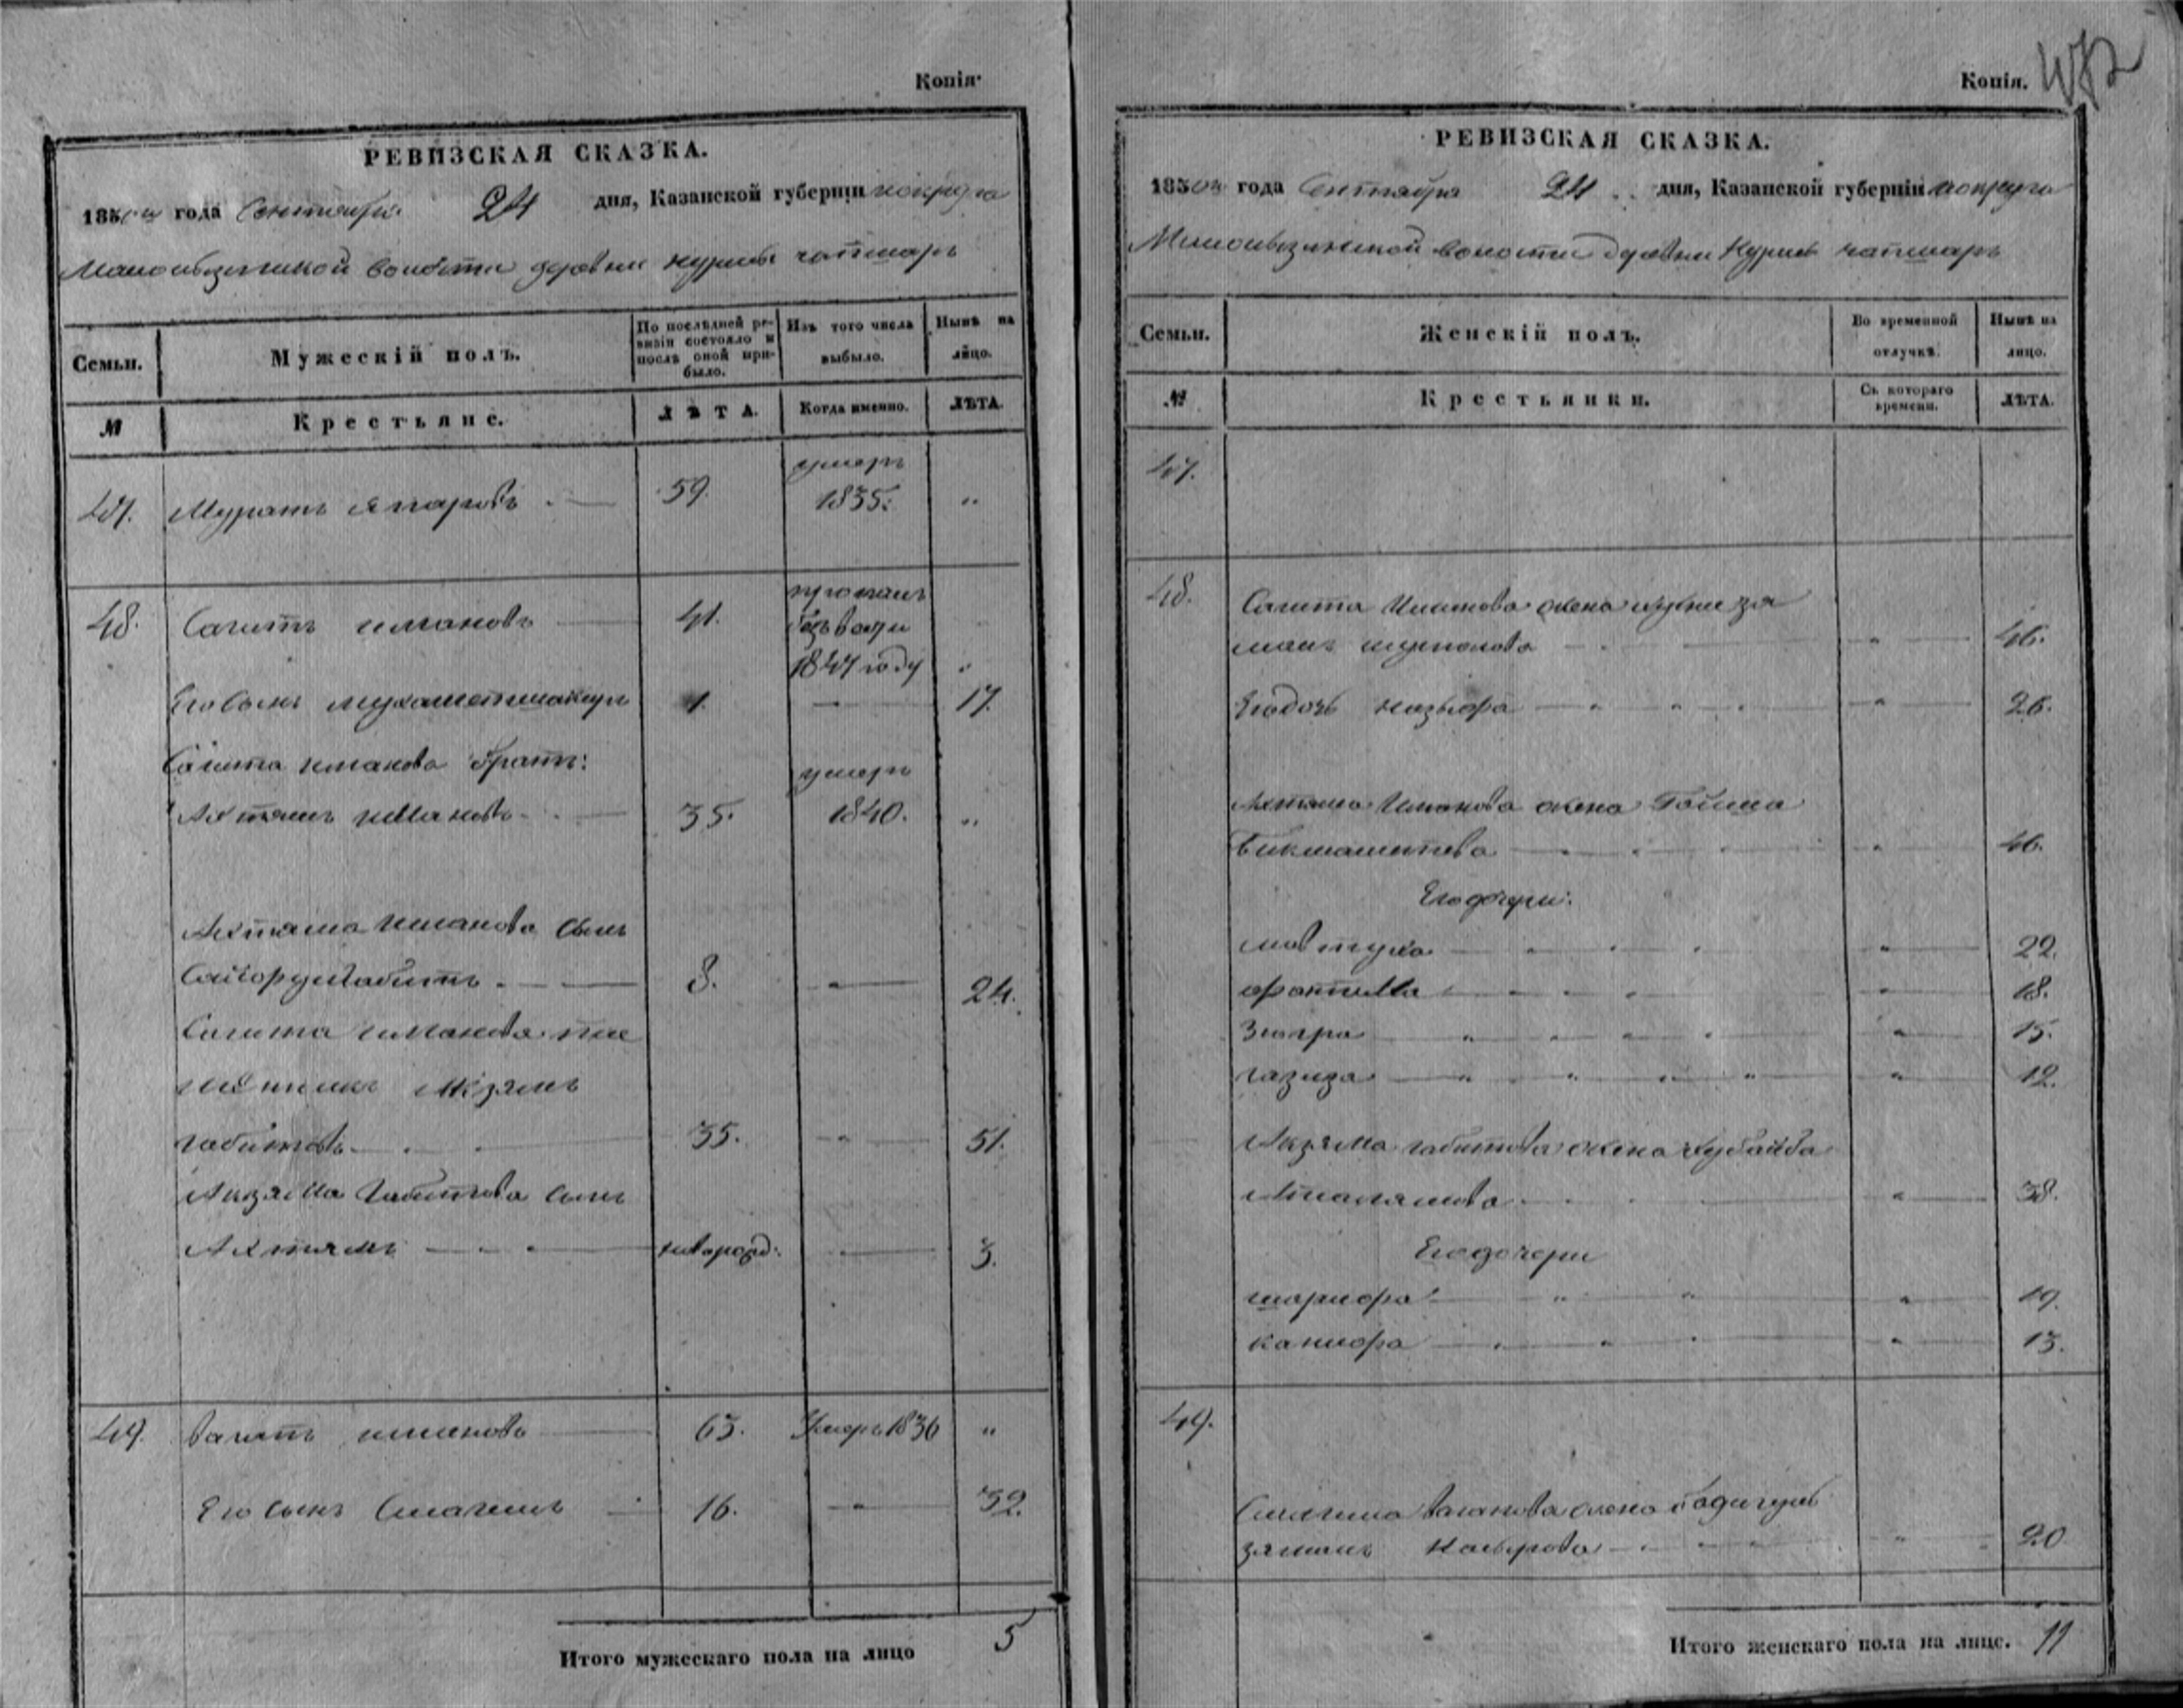 Копія.
РЕВИЗСКАЯ СКАЗКА.
1850го года Сентября 24 дня, Казанской губерніи округа
волости деревни Курмы чапшаръ
Семьи. Мужескій полъ. По послѣдней ревизіи состояло и послѣ оной прибыло. Изъ того числа выбыло. Нынѣ на лицо.
№ Крестьяне. ЛѢТА. Когда именно. ЛѢТА.
47. Муратъ Япаровъ 59. умеръ 1835. "
48. Сагитъ имановъ 41. пропалъ безъ вѣсти 1847 году "
Его сынъ мухаметшакиръ 1. 17.
Сагита иманова братъ:
Ахтямъ имановъ 35. умеръ 1840. "
Ахтяма иманова сынъ
8. " 24.
Сагита иманова пле
мянникъ Акзямъ
габитовъ 35. " 51.
Акзяма Габитова сынъ
Ахтямъ новорожд: 3.
49. Вагапъ имановъ 63. Умеръ 1836 "
Его сынъ Смагилъ 16. " 32.
Итого мужескаго пола на лицо 5
Копія.
РЕВИЗСКАЯ СКАЗКА.
1850го года Сентября 24 дня, Казанской губерніи округа
волости деревни Курмы чапшаръ
Семьи. Женскій полъ. Во временной отлучкѣ. Нынѣ на лицо.
№ Крестьянки. Съ котораго времени. ЛѢТА.
47.
48. Сагита Иманова жена
" 46.
Его дочь " 26.
Ахтяма Иманова жена Гайша
Бикмаметева " 46.
Его дочери:
мавтуха " 22.
фатима " 18.
Зюгра " 15.
газиза " 12.
Акзяма габитова жена хубайба
" 38.
Его дочери
шарифа " 19.
канифа " 13.
49.
Смагила Вагапова жена бадигулъ
зямалъ " 20
Итого женскаго пола на лице. 11